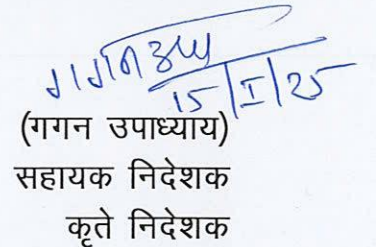 गगन उपा
15/I/25
(गगन उपाध्याय)
सहायक निदेशक
कृते निदेशक